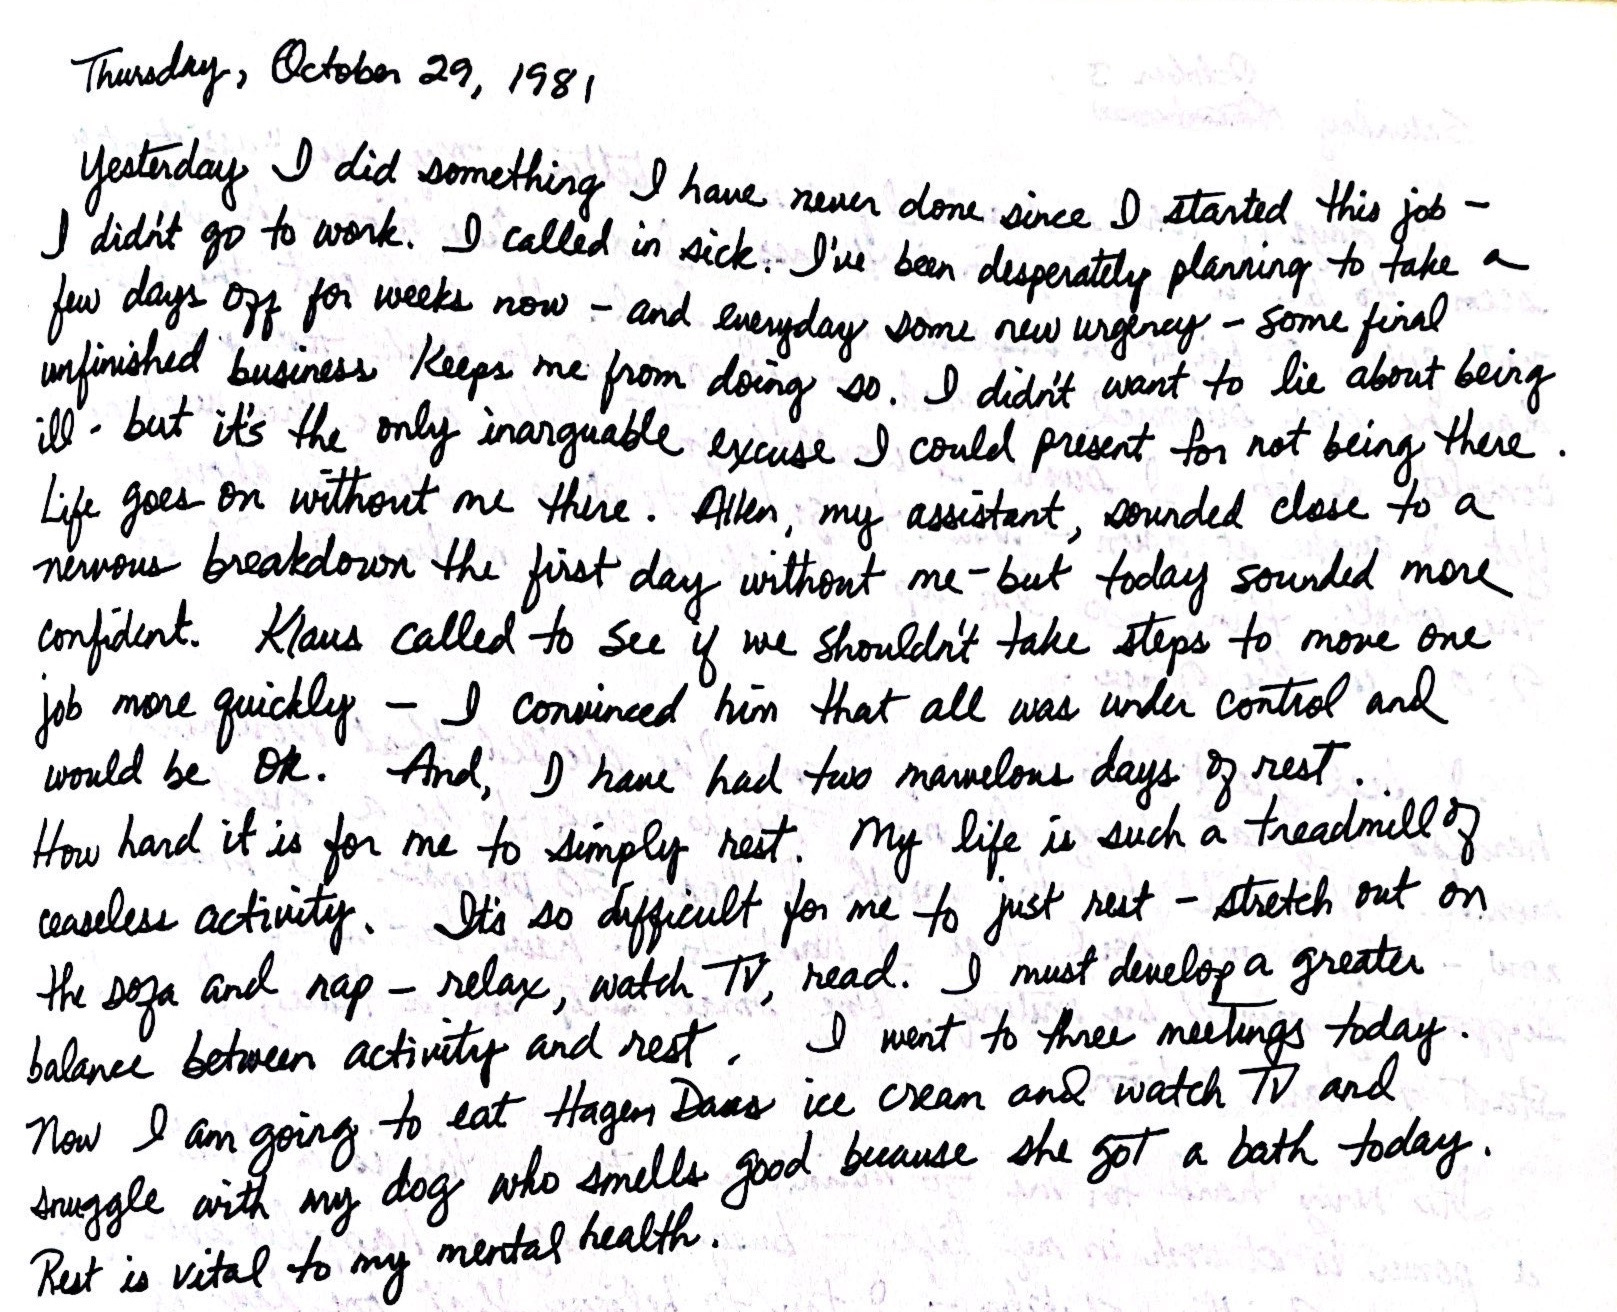 Thursday, October 29, 1981
Yesterday I did something I have never done since I started this job -
I didn't go to work. I called in sick. I've been desperately planning to take a
few days off for weeks now - and everyday some new urgency - some final
unfinished business keeps me from doing so. I didn't want to lie about being
ill - but it's the only inarguable excuse I could present for not being there.
Life goes on without me there. Allen, my assistant, sounded close to a
nervous breakdown the first day without me - but today sounded more
confident. Klaus called to see if we shouldn't take steps to move one
job more quickly - I convinced him that all was under control and
would be OK. And, I have had two marvelous days of rest.
How hard it is for me to simply rest. My life is such a treadmill of
ceaseless activity. It's so difficult for me to just rest - stretch out on
the sofa and nap - relax, watch TV, read. I must develop a greater
balance between activity and rest. I went to three meetings today.
Now I am going to eat Hagen Daas ice cream and watch TV and
snuggle with my dog who smells good because she got a bath today.
Rest is vital to my mental health.